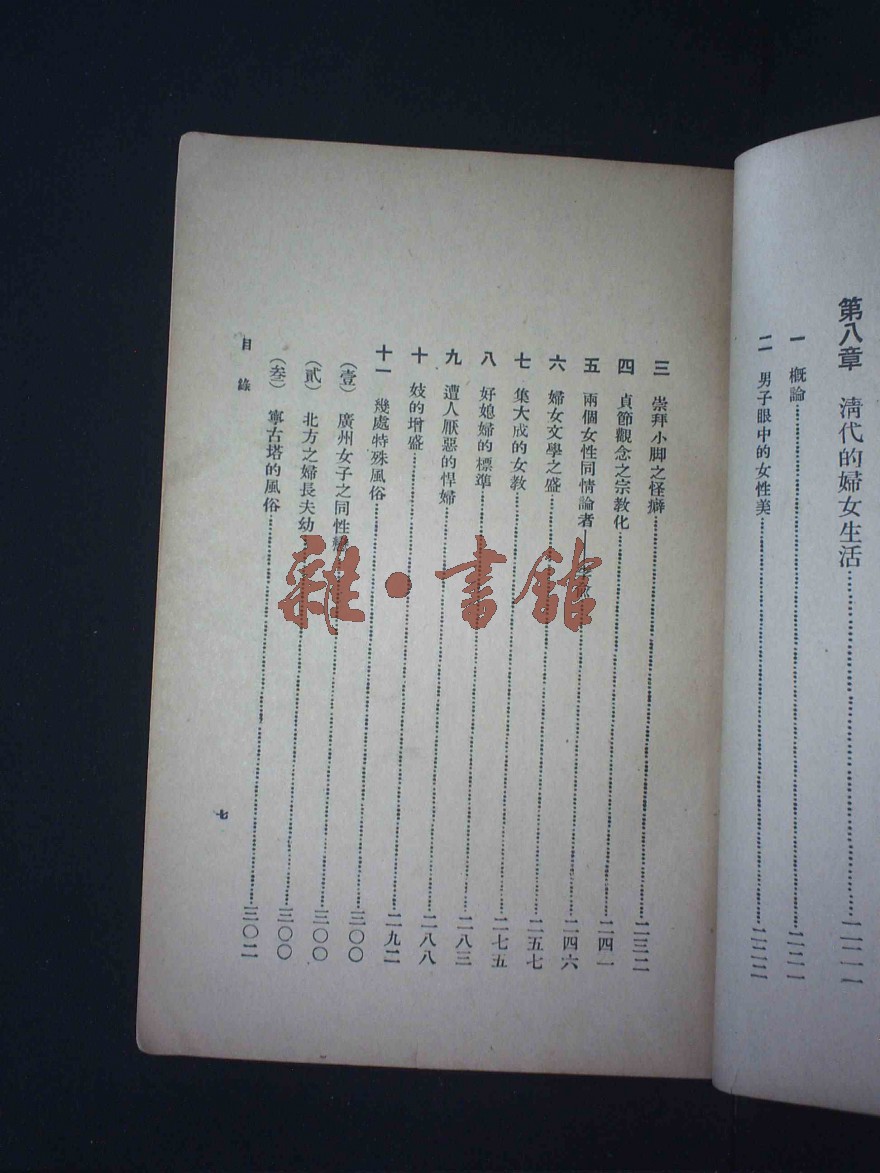 第八章 清代的婦女生活……二二一
一 概論……二二一
二 男子眼中的女性美……二二二
三 崇拜小脚之怪癖……二三二
四 貞節觀念之宗教化……二四一
五 兩個女性同情論者——……二四六
六 婦女文學之盛……二五七
七 集大成的女教……二七五
八 好媳婦的標準……二八三
九 遭人厭惡的悍婦……二八八
十 妓的增盛……二九二
十一 幾處特殊風俗……三〇〇
(壹) 廣州女子之同性……三〇〇
(貳) 北方之婦長夫幼……三〇〇
(叁) 寧古塔的風俗……三〇二
目錄
七
雜·書館